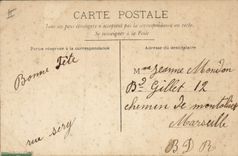 CARTE POSTALE
Tous les pays étrangers n'acceptent pas la correspondance au recto.
Se renseigner à la Poste
Partie réservée à la correspondance
Adresse du destinataire
Bonne Fête
rue
Mme Jeanne Mondon
Bd Gillet 12
chemin de montolivet
Marseille
B D R